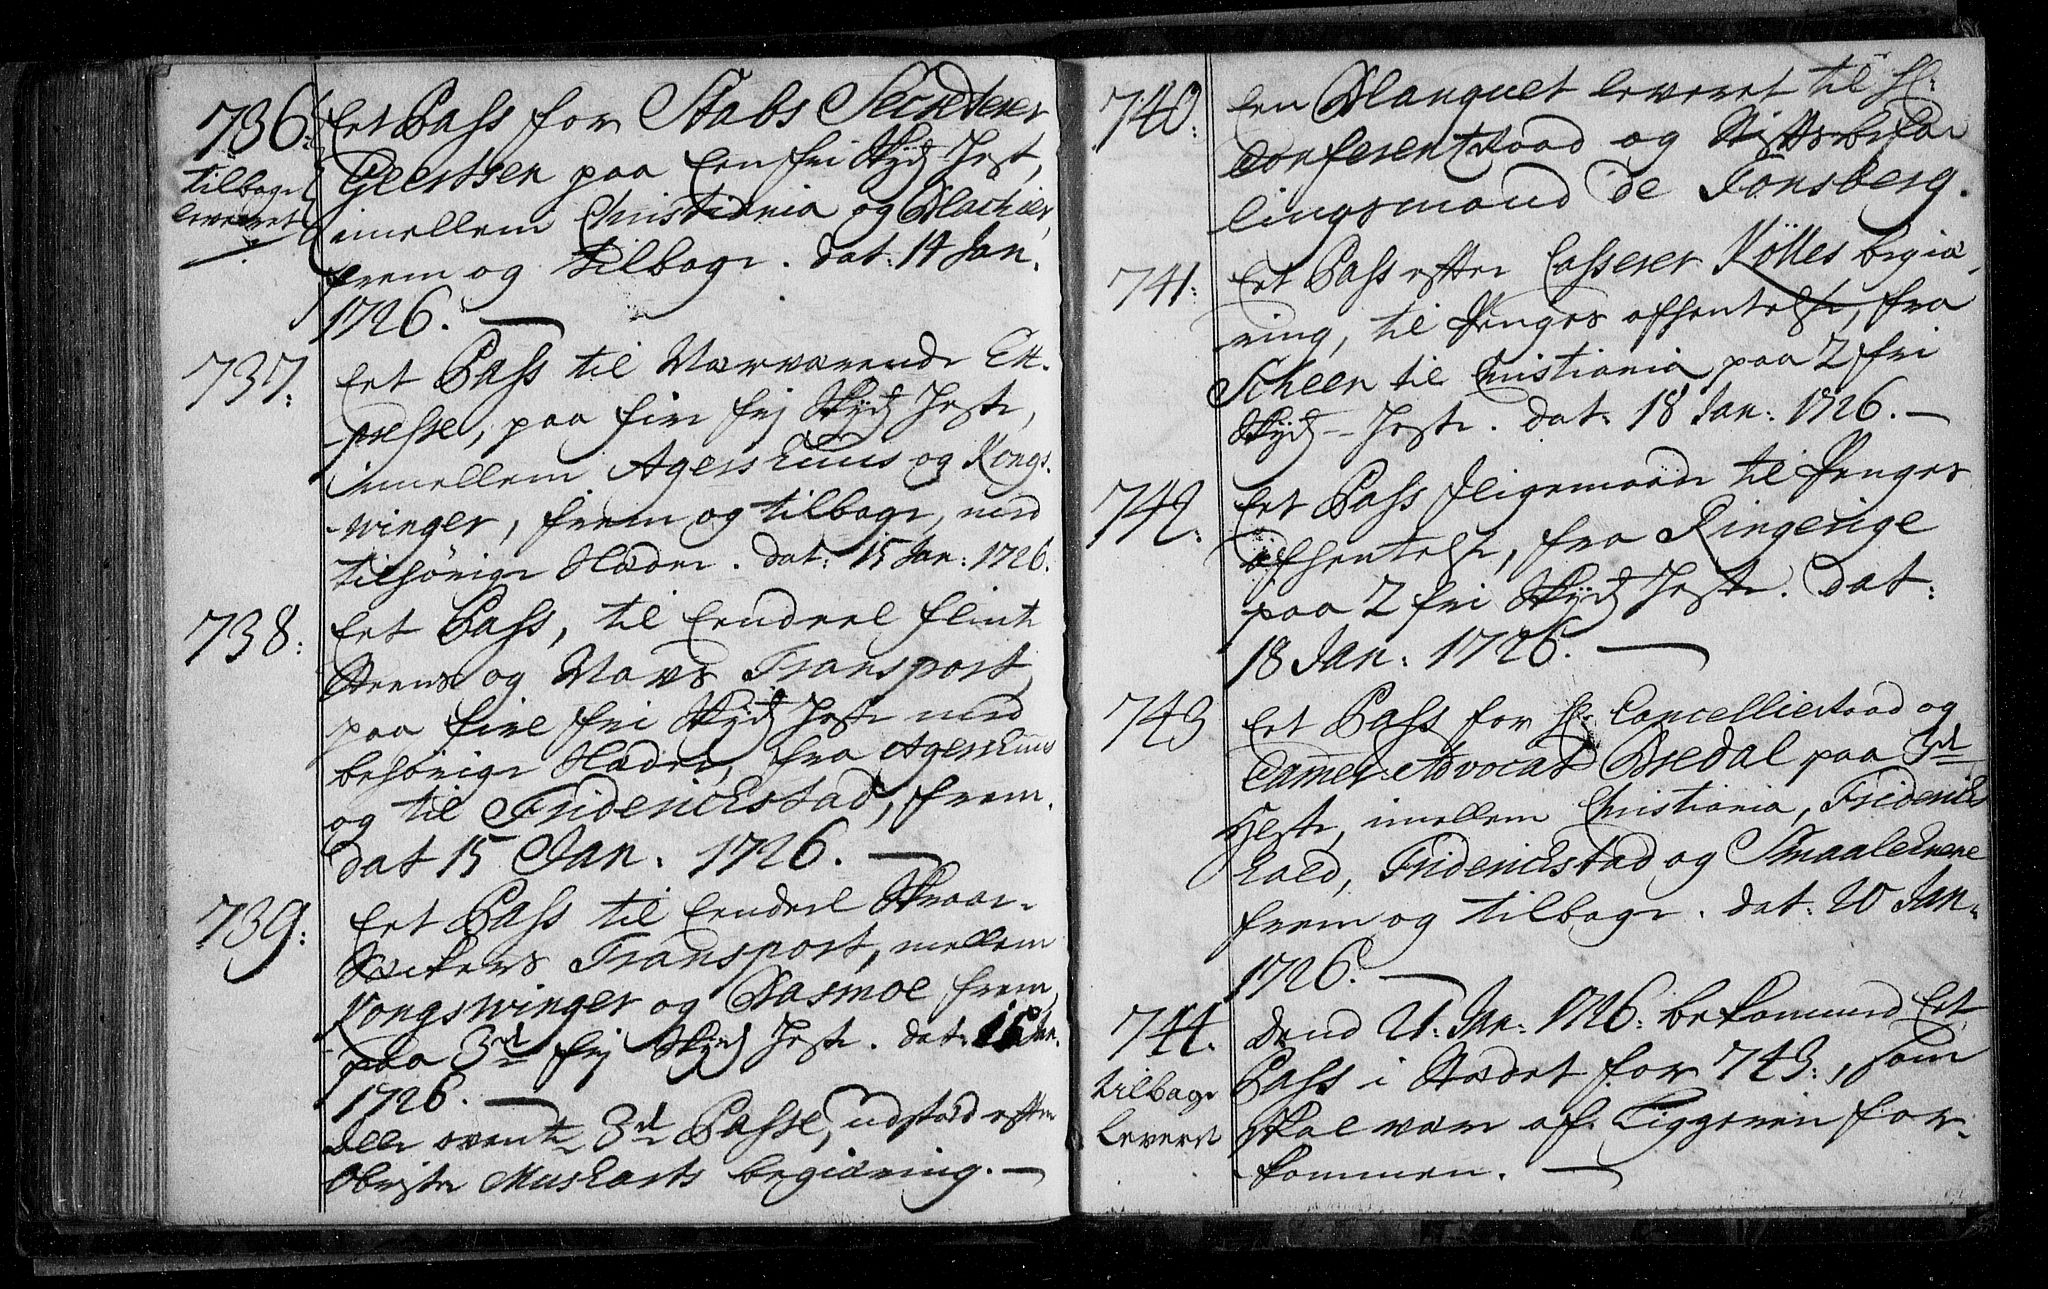 736: Eet Pass for Stabs Secreterer
Geertsen paa Een fri Skyds Hest,
tilbage
leveret
imellem Christiania og Blachier,
frem og tilbage. dat: 14 Jan.
1726. —
737: Eet Pass til Nærværende Ex-
presse, paa fire frj Skyds Heste,
imellem Agershuus og Kongs-
winger, frem og tilbage, med
tilhörige Slæder. dat: 15 Jan: 1726.
738: Eet Pass, til Eendeel flinte
Steens og Transport
paa fire fri Skyds Heste med
behörige Slæder, fra Agershuus
og til Friderichstad, frem.
dat 15 Jan. 1726. —
739: Eet Pass til Eendeel
Transport, mellem
Kongswinger og Basmoe frem,
paa 3de frj Skyds Heste. dat: Jan.
1726. —
Alle ovente 3de Passe, udstæd efter
Obriste begiæring. —
740: Een Blanquet leveret til Hr:
Conferentz Raad og Stiftsbefa-
lingsmand de Tonsberg.
741: Eet Pass efter Casserer Nölles begiæ-
ring, til Penges afhentelse, fra
Scheen til Christiania paa 2 fri
Skyds-Heste. dat: 18 Jan: 1726. —
742: Eet Pass Iligemaade til Penges
afhentelse, fra Ringerige
paa 2 fri Skyds Heste. dat:
18 Jan: 1726. —
743 Eet Pass for Hr: Cancellieraad og
Camer Advocat Bredal paa 3de
Heste, imellem Christiania, Friderichs
hald, Friderichstad og Smaalehnene
frem og tilbage. dat: 20 Jan:
1726. —
744. Dend 21. Jan: 1726. bekommed Eet
Pass i Stædet for 743:, som
tilbage
leveret
skal være af Liggeren for-
kommen. —